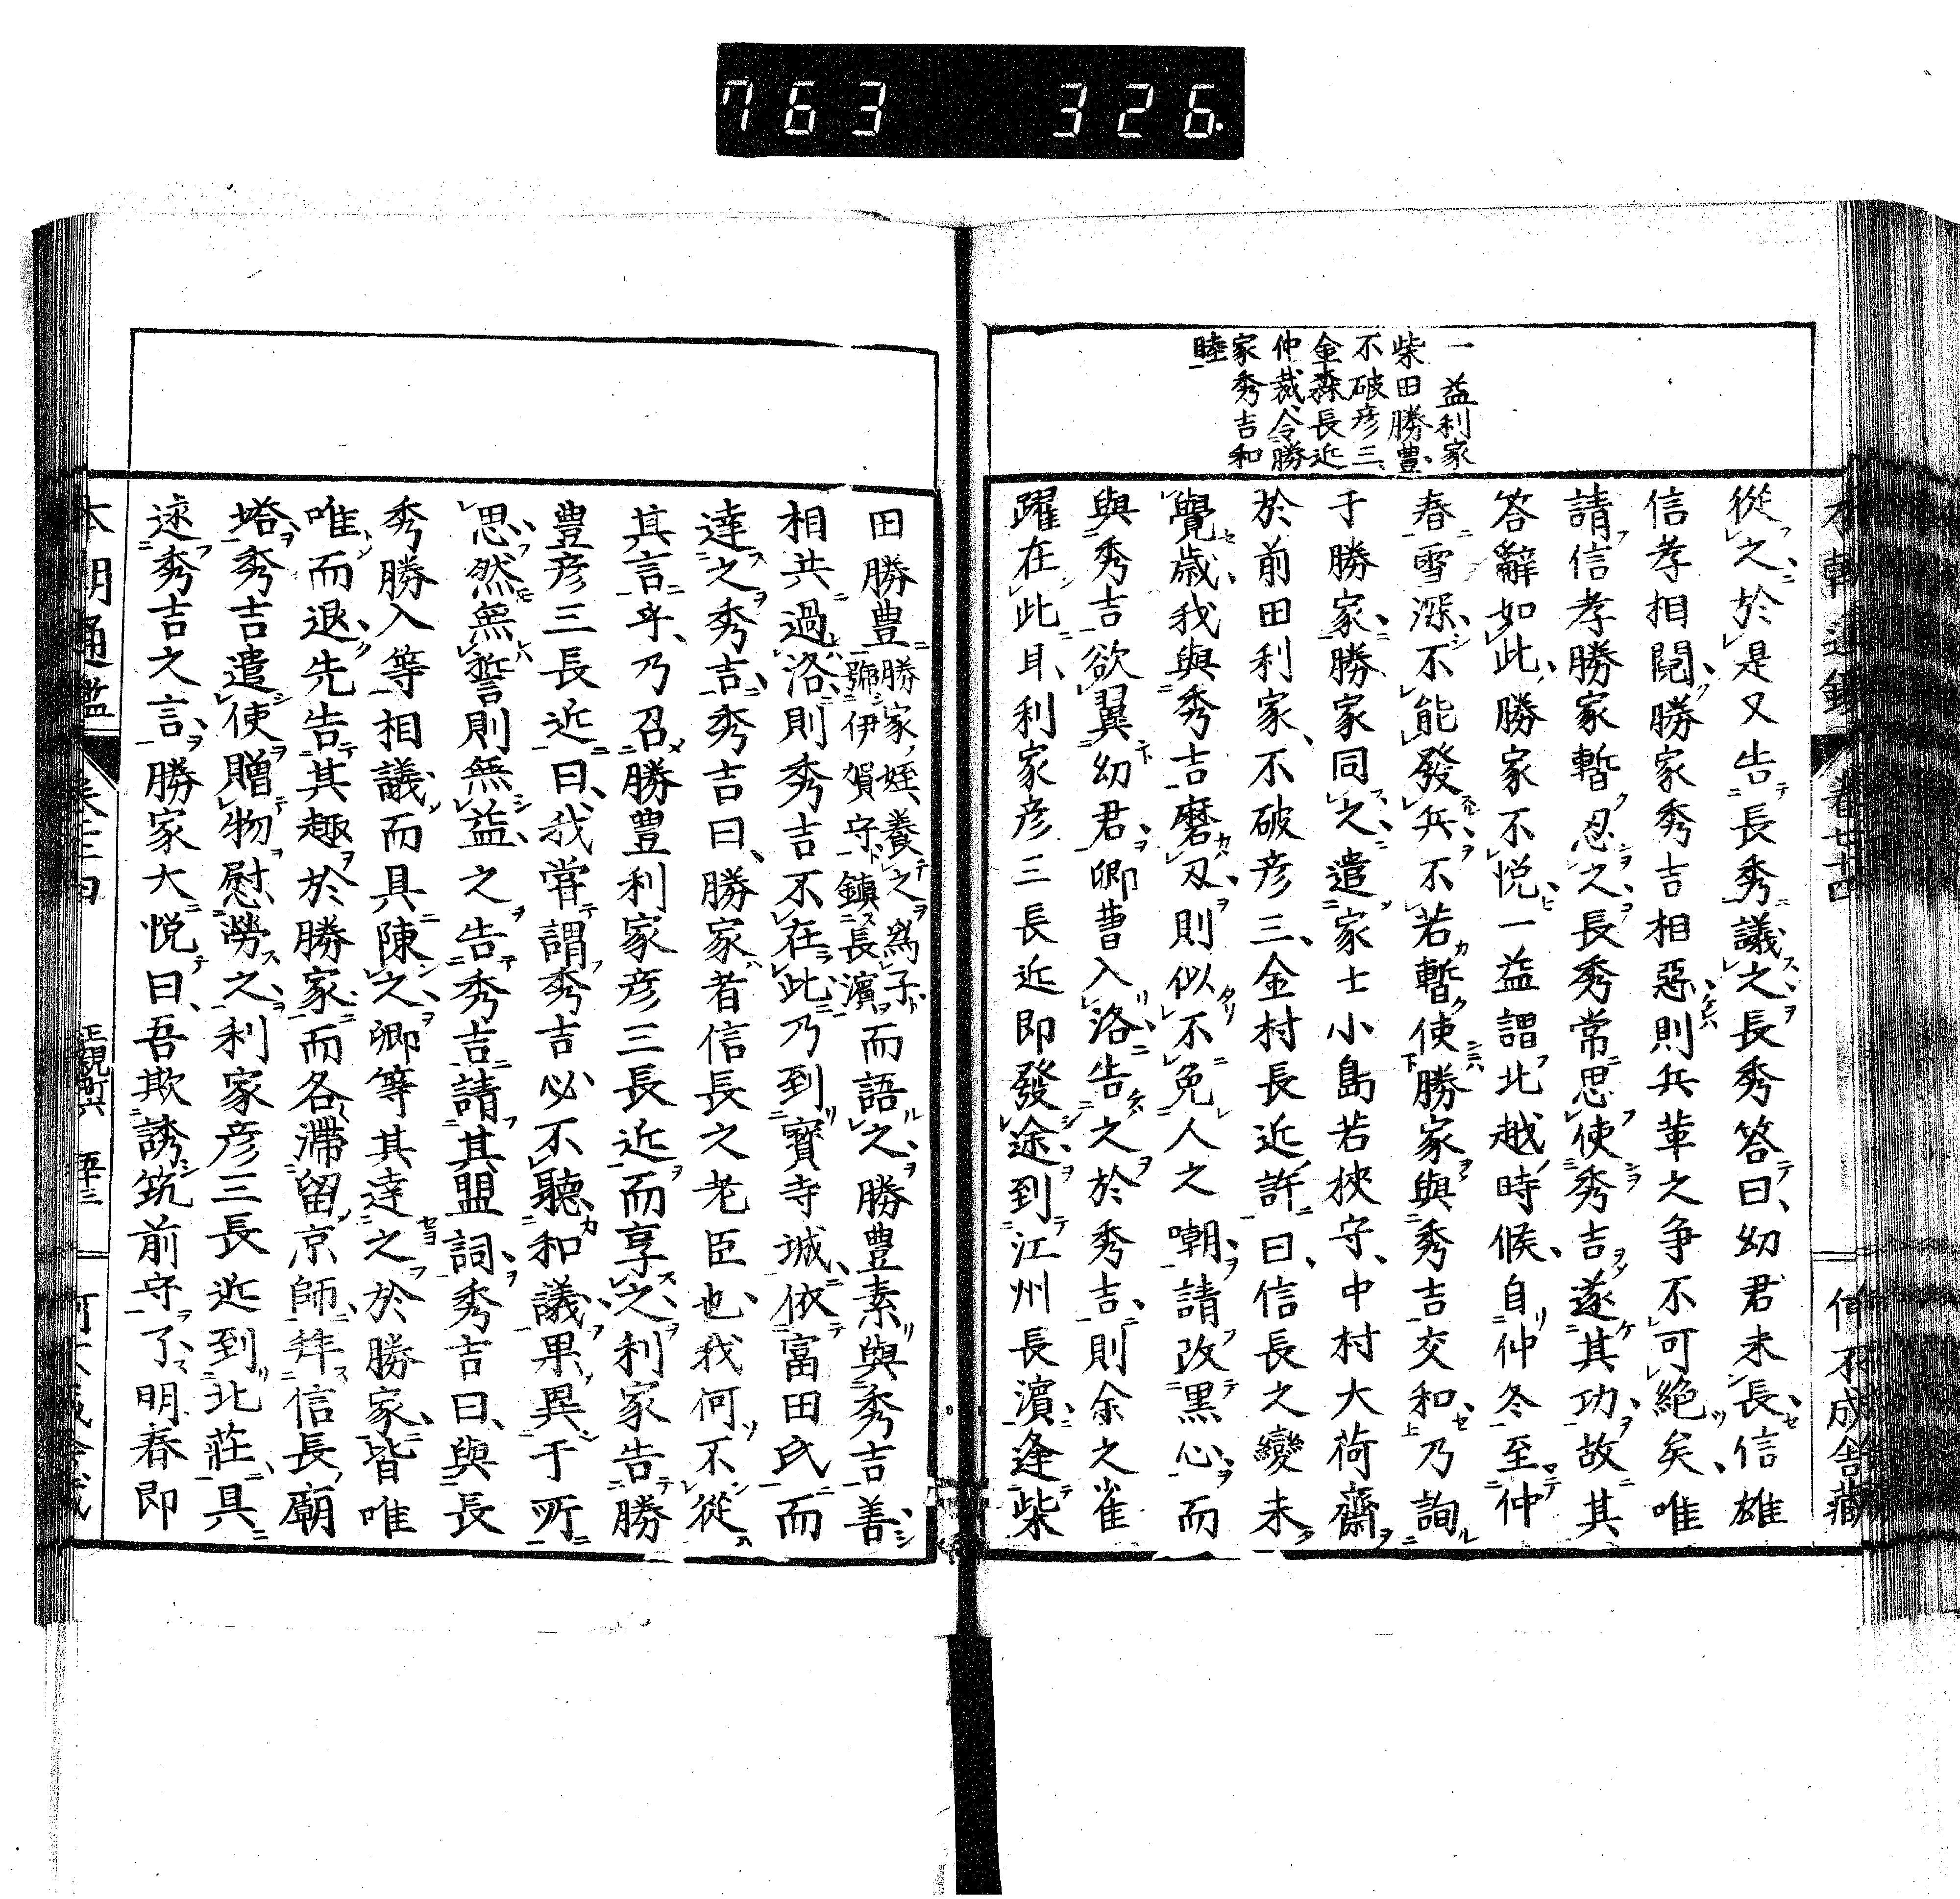 763 326.
一益利家
柴田勝豊
不破彦三
金森長近
仲裁令勝
家秀吉和
睦
從之於是又告長秀議之長秀答曰幼君未長信雄
信孝相䦧勝家秀吉相惡則兵革之争不可絶矣唯
請信孝勝家暫忍之長秀常思使秀吉遂其功故其
答辭如此勝家不悦一益謂北越時候自仲冬至仲
春雪深不能發兵不若暫使勝家與秀吉交和乃詢
于勝家勝家同之遣家士小島若狹守中村大荷齋
於前田利家不破彦三金村長近許曰信長之變未
覺歳我與秀吉磨刄則似不免人之嘲請改黒心而
與秀吉欲翼幼君卿曹入洛告之於秀吉則余之雀
躍在此耳利家彦三長近即發途到江州長濵逢柴
田勝豊勝家姪養之爲子號伊賀守鎮長濵而語之勝豊素與秀吉善
相共過洛則秀吉不在此乃到寳寺城依富田氏而
達之秀吉秀吉曰勝家者信長之老臣也我何不從
其言乎乃召勝豊利家彦三長近而享之利家告勝
豊彦三長近曰我嘗謂秀吉必不聽和議果異于所
思然無誓則無益之告秀吉請其盟詞秀吉曰與長
秀勝入等相議而具陳之卿等其達之於勝家皆唯
唯而退先告其趣於勝家而各滯留京師拜信長廟
塔秀吉遣使贈物慰勞之利家彦三長近到北莊具
述秀吉之言勝家大悦曰吾欺誘筑前守了明春即